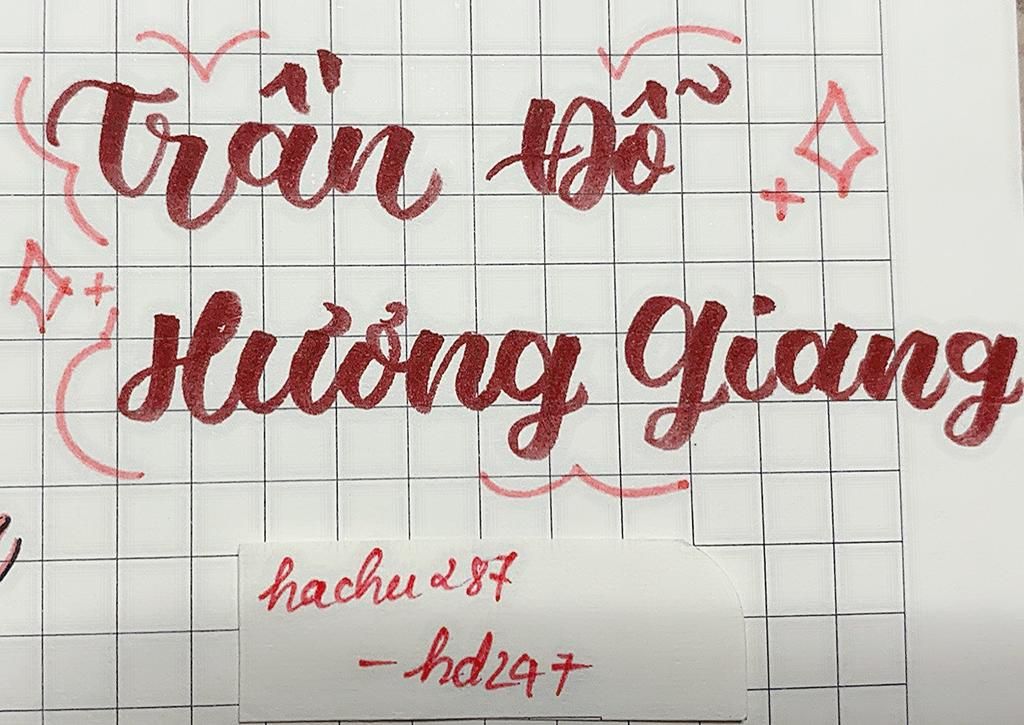 Trần Đỗ
Hương Giang
hachu287
-hd247